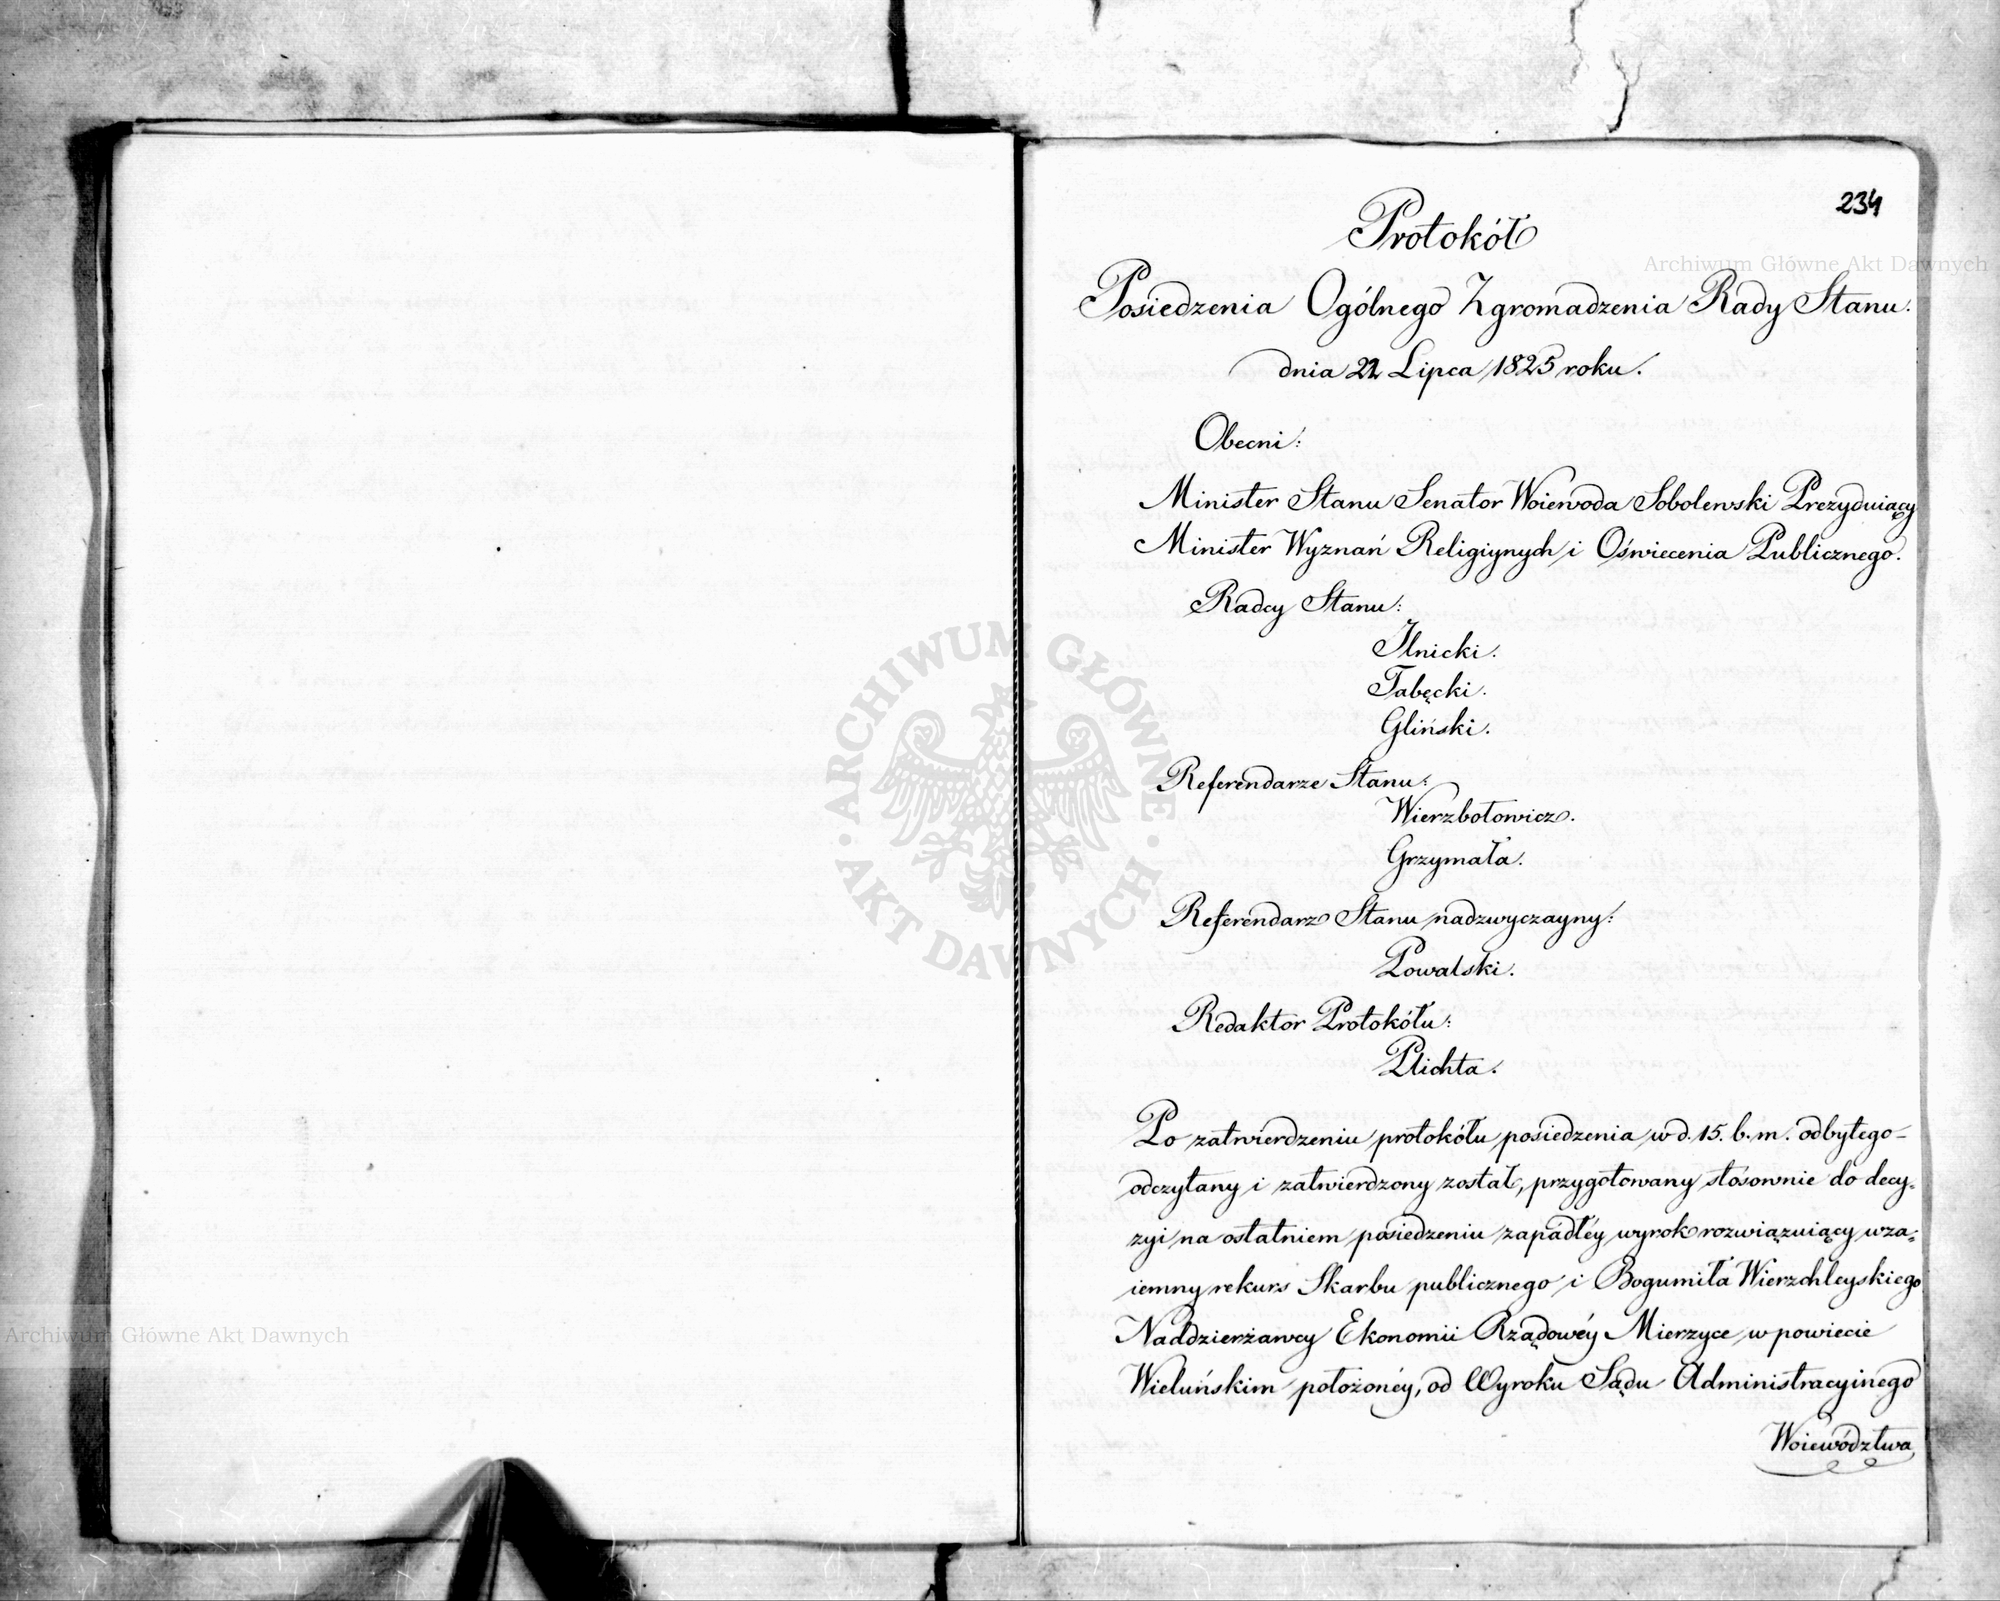 234
Protokół
Archiwum Główne Akt Dawnych
Posiedzenia Ogólnego Zgromadzenia Rady Stanu.
dnia 22 Lipca 1825 roku.
Obecni:
Minister Stanu Senator Woiewoda Sobolewski Prezyduiący
Minister Wyznań Religiynych i Oświecenia Publicznego.
Radcy Stanu:
Ilnicki.
Tabęcki.
Gliński.
Referendarze Stanu:
Wierzbołowicz.
Grzymała.
Referendarz Stanu nadzwyczayny:
Powalski.
Redaktor Protokółu:
Plichta.
Po zatwierdzeniu protokółu posiedzenia w d. 15. b. m. odbytego-
odczytany i zatwierdzony został, przygotowany stósownie do decy-
zyi na ostatniem posiedzeniu zapadłéy wyrok rozwiązuiący wza-
iemny rekurs Skarbu publicznego i Bogumiła Wierzchleyskiego
Naddzierżawcy Ekonomii Rządowéy Mierzyce w powiecie
Wieluńskim położonéy, od Wyroku Sądu Administracyinego
Woiewództwa
ARCHIWUM GŁÓWNE
AKT DAWNYCH
Archiwum Główne Akt Dawnych